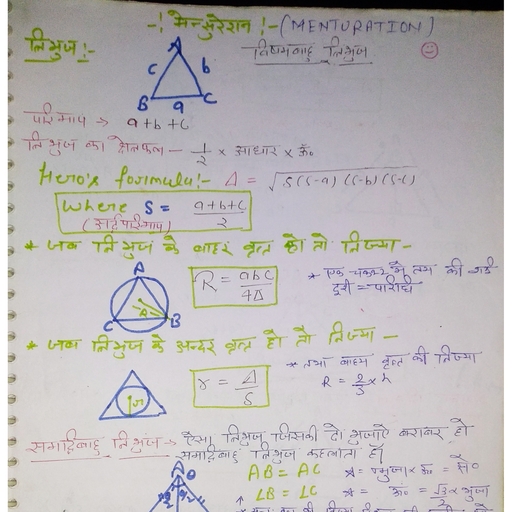 -! मेन्सुरेशन !- (MENTURATION)
त्रिभुज !-
विषमबाहु त्रिभुज
A
c b
B a C
परिमाप → a+b+c
त्रिभुज का क्षेत्रफल - 1/2 × आधार × ऊँ०
Hero's formula!- Δ = √S(S-a) (S-b) (S-c)
Where S = a+b+c/2
(अर्द्धपरिमाप)
* जब त्रिभुज के बाहर वृत्त हो तो त्रिज्या -
A
C B
R = abc/4Δ
* एक चक्कर में तय की गई
दूरी = परिधि
* जब त्रिभुज के अन्दर वृत्त हो तो त्रिज्या -
r = Δ/S
* तथा बाह्य वृत्त की त्रिज्या
R = 2/3 × h
समद्विबाहु त्रिभुज → ऐसा त्रिभुज जिसकी दो भुजाएँ बराबर हो
समद्विबाहु त्रिभुज कहलाता है।
A
AB = AC
∠B = ∠C
ऊँ० = √3/2 × भुजा